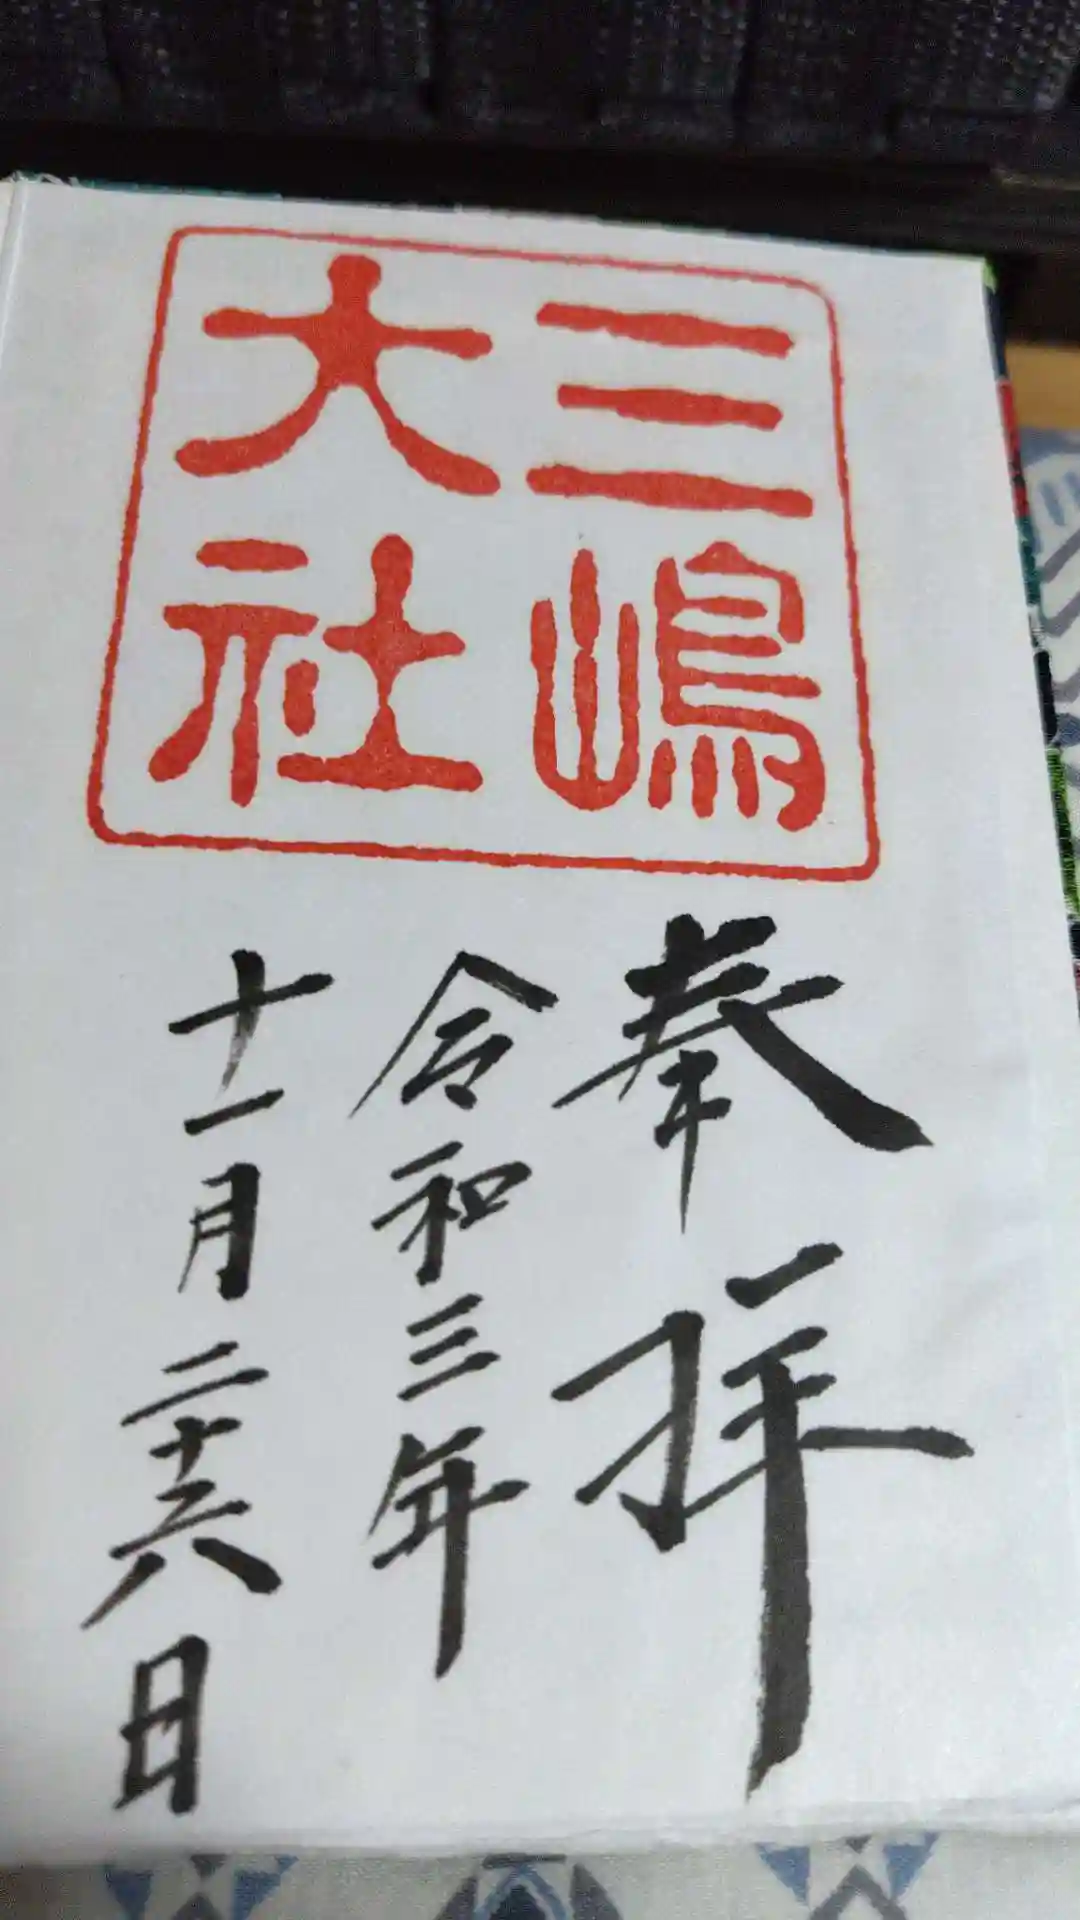 三嶋
大社
奉拝
令和三年
十一月二十六日